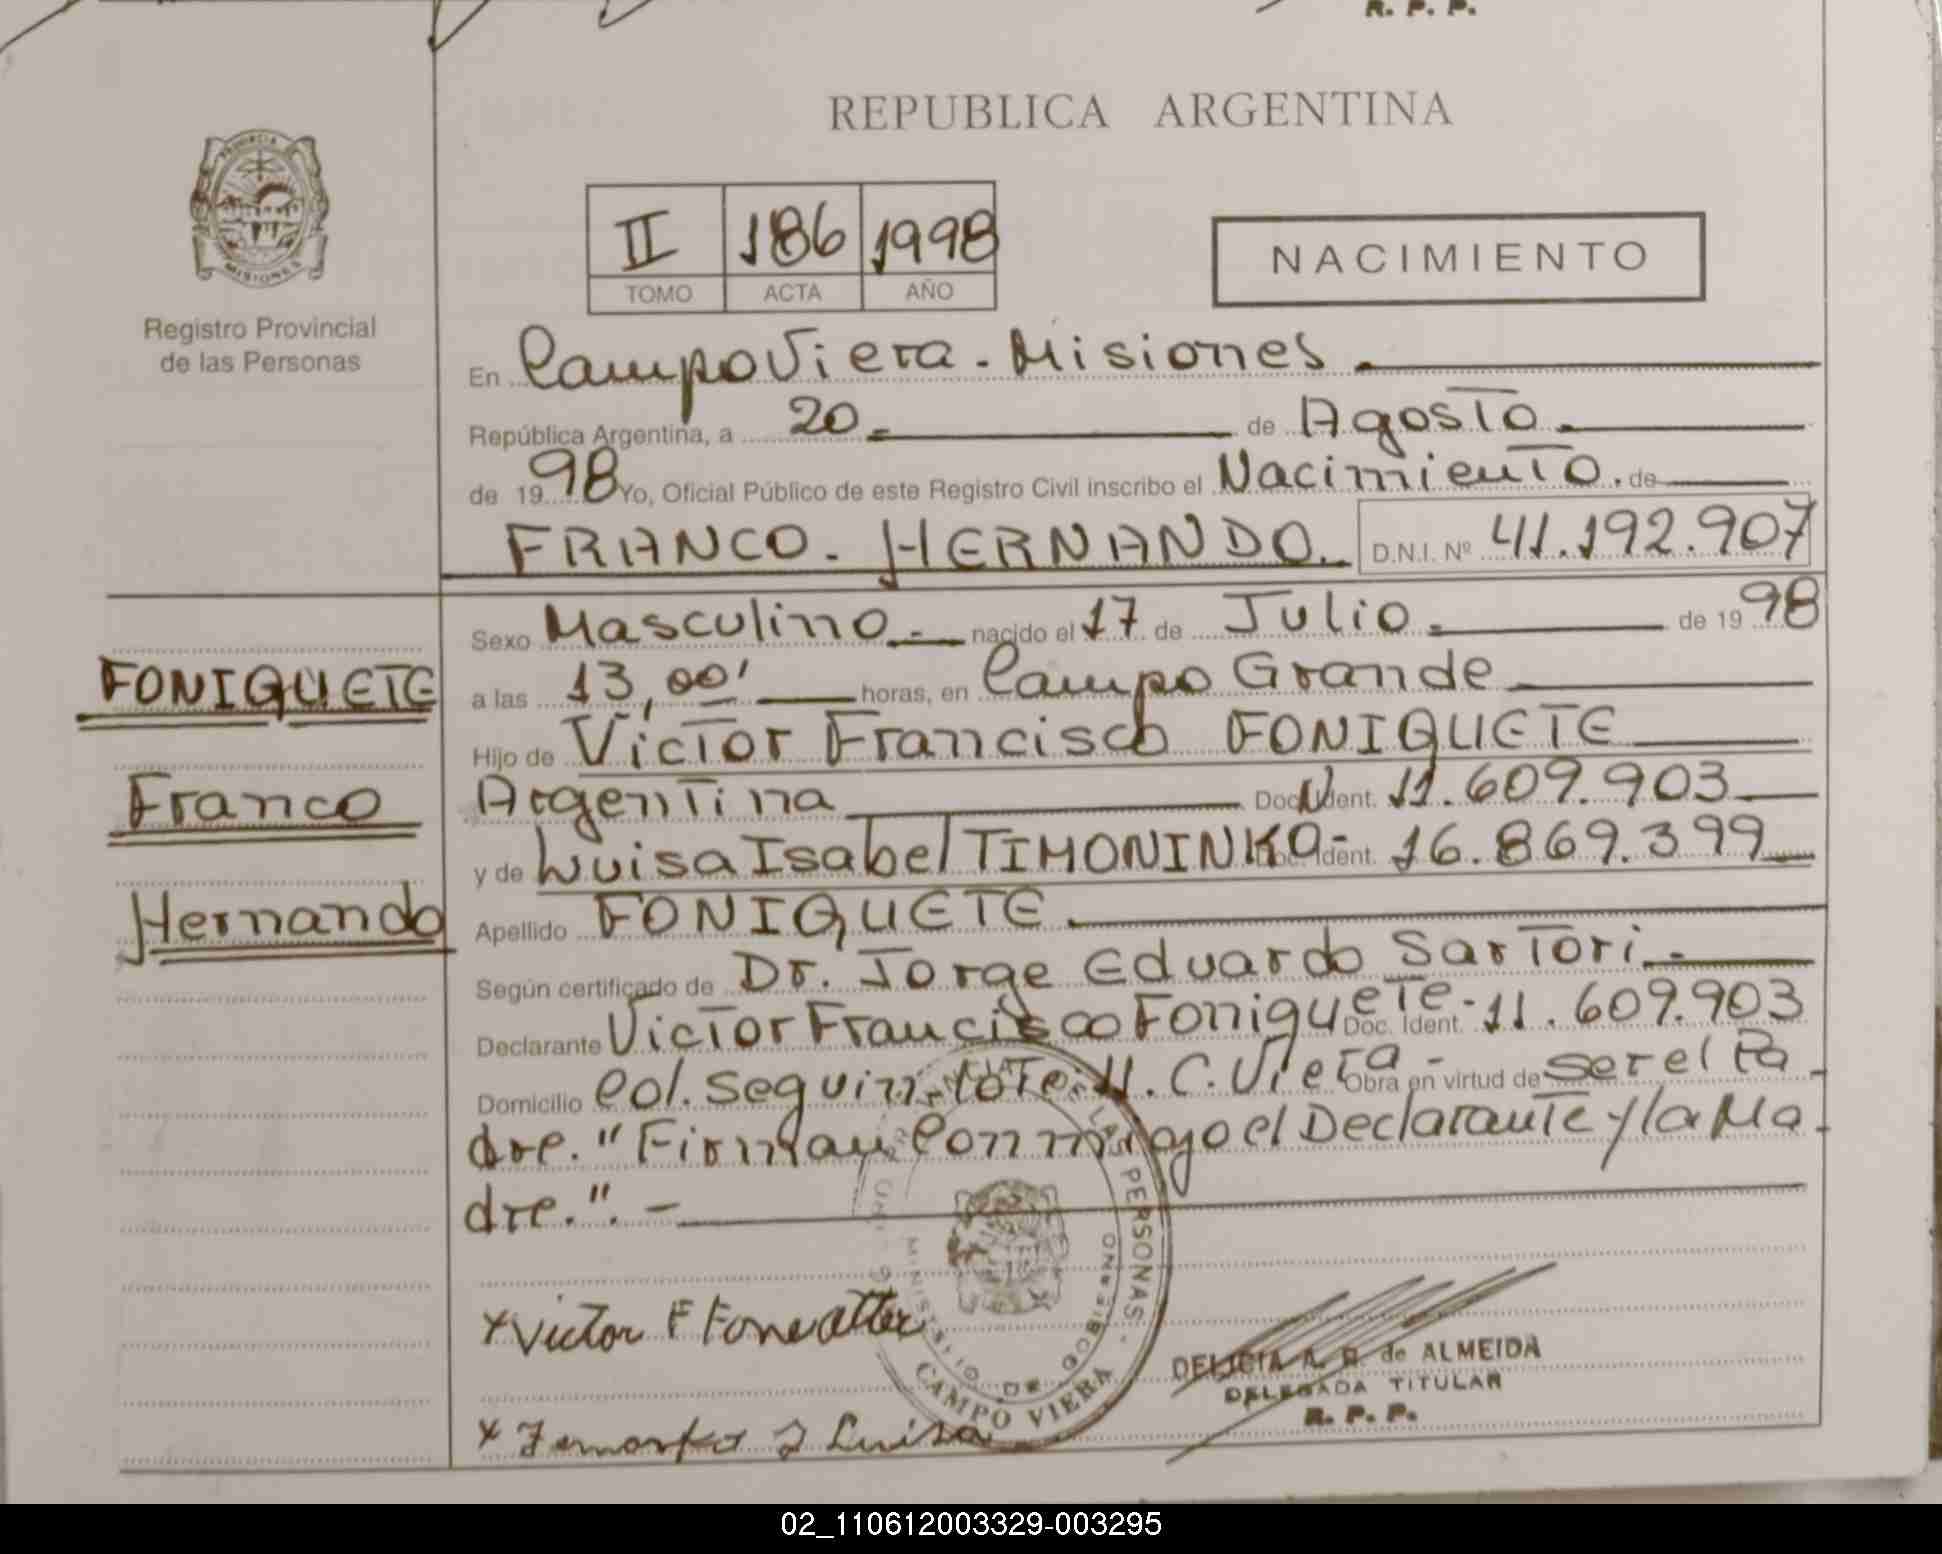 R. P. P.
REPUBLICA ARGENTINA
PROVINCIA DE
MISIONES
Registro Provincial
de las Personas
II 186 1998
TOMO ACTA AÑO
NACIMIENTO
En Campo Viera - Misiones.
República Argentina, a 20 de Agosto.
de 1998 Yo, Oficial Público de este Registro Civil inscribo el Nacimiento. de
FRANCO - HERNANDO. D.N.I. Nº 41.192.907
FONIQUETE
Franco
Hernando
Sexo Masculino.- nacido el 17 de Julio. de 1998
a las 13,00' horas, en Campo Grande
Hijo de Victor Francisco FONIQUETE
Argentina Doc. Ident. 11.609.903
y de Luisa Isabel TIMONINKO- Doc. Ident. 16.869.399
Apellido FONIQUETE.
Según certificado de Dr. Jorge Eduardo Sartori.-
Declarante Victor Francisco Foniquete- Doc. Ident. 11.609.903
Domicilio Col. Seguin. Lote 11. C. Viera- Obra en virtud de ser el Pa-
dre. "Firman Conmigo el Declarante y la Ma-
dre.". -
LAS PERSONAS
MINISTERIO DE GOBIERNO
CAMPO VIERA
x Victor F
x Luisa
DELICIA A. R. de ALMEIDA
DELEGADA TITULAR
R. P. P.
02_110612003329-003295